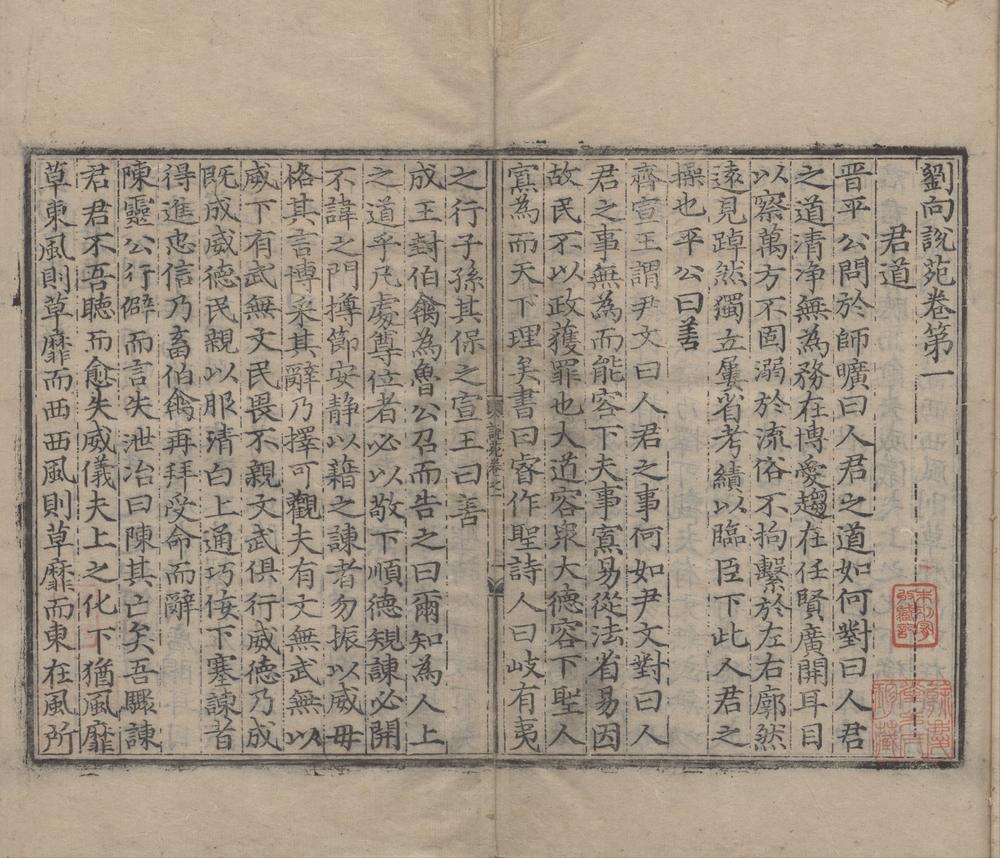 劉向說苑卷第一
君道
晉平公問於師曠曰人君之道如何對曰人君
之道清淨無為務在博愛趨在任賢廣開耳目
以察萬方不固溺於流俗不拘繫於左右廓然
遠見踔然獨立屢省考績以臨臣下此人君之
操也平公曰善
齊宣王謂尹文曰人君之事何如尹文對曰人
君之事無為而能容下夫事寡易從法省易因
故民不以政獲罪也大道容衆大德容下聖人
寡為而天下理矣書曰睿作聖詩人曰岐有夷
說苑卷之一
之行子孫其保之宣王曰善
成王封伯禽為魯公召而告之曰爾知為人上
之道乎凡處尊位者必以敬下順德規諫必開
不諱之門撙節安静以藉之諫者勿振以威毋
格其言博采其辭乃擇可觀夫有文無武無以
威下有武無文民畏不親文武俱行威德乃成
既成威德民親以服清白上通巧佞下塞諫者
得進忠信乃畜伯禽再拜受命而辭
陳靈公行僻而言失泄冶曰陳其亡矣吾驟諫
君君不吾聽而愈失威儀夫上之化下猶風靡
草東風則草靡而西西風則草靡而東在風所